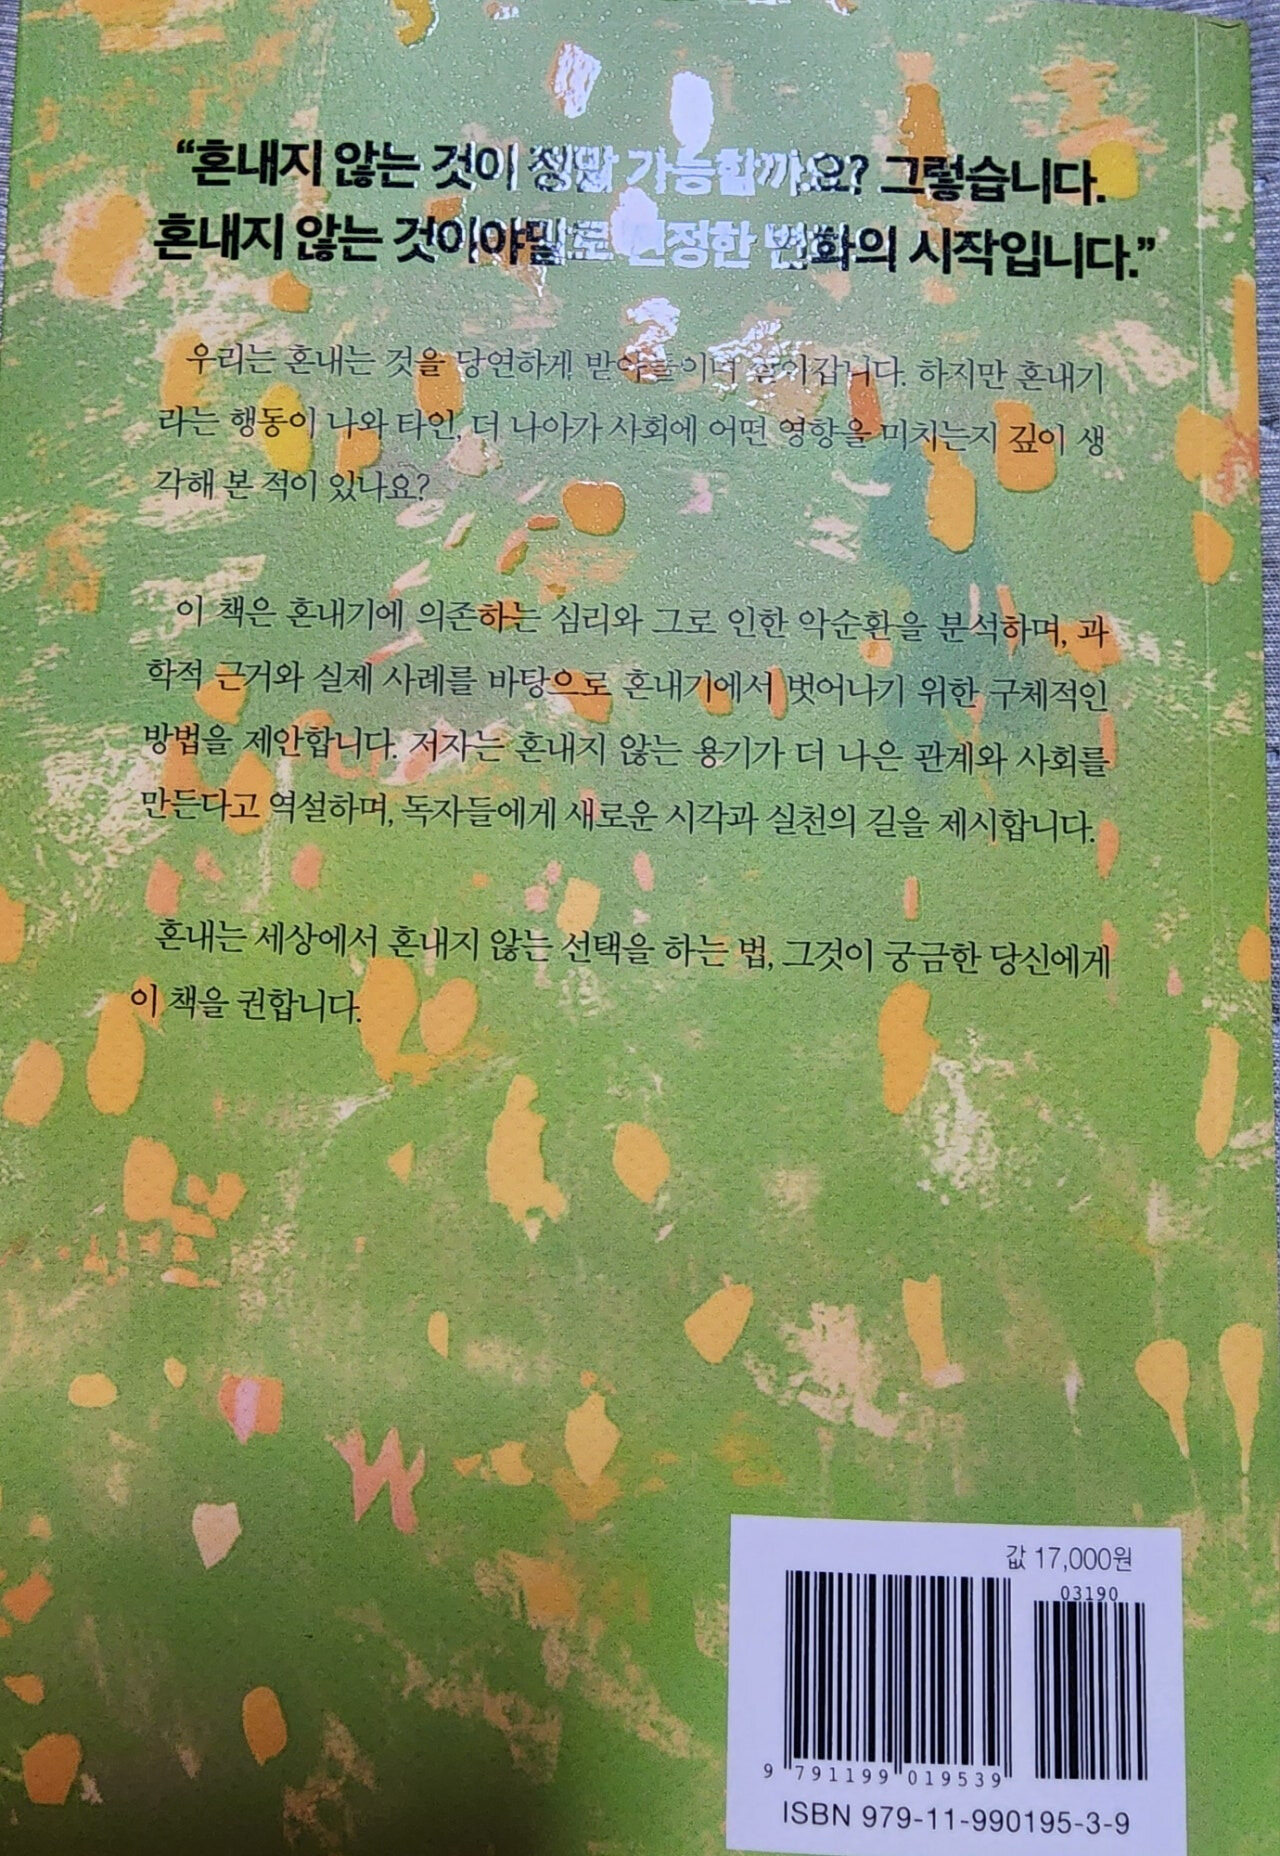 “혼내지 않는 것이 정말 가능할까요? 그렇습니다.
혼내지 않는 것이야말로 진정한 변화의 시작입니다.”
우리는 혼내는 것을 당연하게 받아들이며 살아갑니다. 하지만 혼내기
라는 행동이 나와 타인, 더 나아가 사회에 어떤 영향을 미치는지 깊이 생
각해 본 적이 있나요?
이 책은 혼내기에 의존하는 심리와 그로 인한 악순환을 분석하며, 과
학적 근거와 실제 사례를 바탕으로 혼내기에서 벗어나기 위한 구체적인
방법을 제안합니다. 저자는 혼내지 않는 용기가 더 나은 관계와 사회를
만든다고 역설하며, 독자들에게 새로운 시각과 실천의 길을 제시합니다.
혼내는 세상에서 혼내지 않는 선택을 하는 법, 그것이 궁금한 당신에게
이 책을 권합니다.
값 17,000원
03190
9 791199 019539
ISBN 979-11-990195-3-9